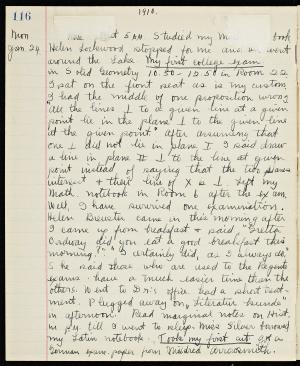 116
1910.
Mon
Jan. 24
at 5 AM Studied my M book
Helen Lockwood stopped for me and we went
around the Lake. My first college exam
in Solid Geometry 10.50 - 12.50 in Room 22
I sat on the front seat as is my custom.
I had the middle of one proposition wrong
"all the lines ⊥ to a given line at a given
point lie in the plane ⊥ to the given line
at the given point" after assuming that
one ⊥ did not lie in plane I said draw
a line in plane II ⊥ to the line at given
point instead of saying that the two planes
intersect & their line of X is ⊥ left my
Math notebook in Room L after the exam.
Well, I have survived one examination.
Helen Brewster came in this morning after
I came up from breakfast & said, "Gretta
Ordway did you eat a good breakfast this
morning?" "I certainly did, as I always do,"
She said those who are used to the Regents
exams have a much easier time than the
others. Went to Dr's office had a short treat-
ment. Plugged away on
in afternoon. Read marginal notes on Hist.
in p.j. till I went to sleep. Miss Silver borrowed
my Latin notebook. Took my first cut
German exam. paper from Mildred Arrowsmith.